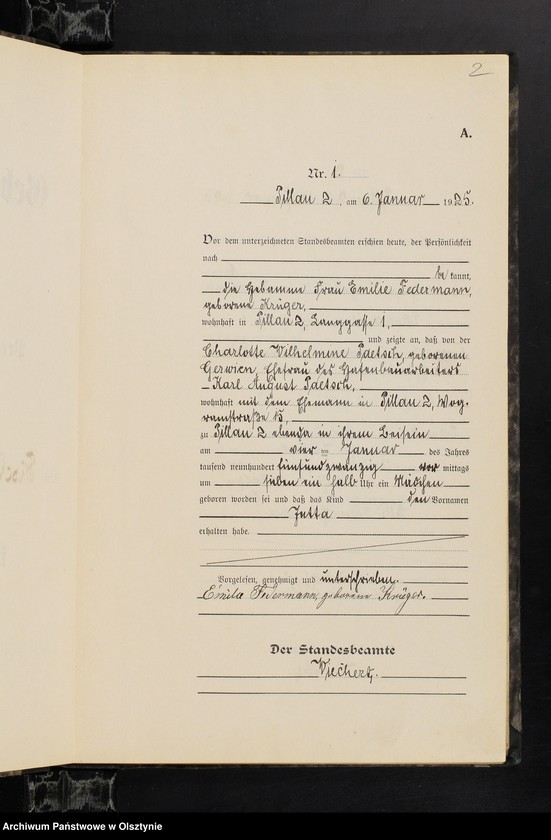 2
A.
Nr. 1.
Pillau 2, am 6. Januar 1925.
Vor dem unterzeichneten Standesbeamten erschien heute, der Persönlichkeit
nach
be kannt,
die Hebamme Frau Emilie Federmann,
geborene Krüger,
wohnhaft in Pillau 2, Langgasse 1,
und zeigte an, daß von der
Charlotte Wilhelmine Paetsch, geborenen
Gerwien, Ehefrau des Hafenbauarbeiters
Karl August Paetsch,
wohnhaft mit dem Ehemann in Pillau 2, Wog-
ramstraße 15
zu Pillau 2 ebenda in ihrem Beisein
am vier ten Januar des Jahres
tausend neunhundert fünfundzwanzig vor mittags
um sieben ein halb Uhr ein Mädchen
geboren worden sei und daß das Kind den Vornamen
Jutta
erhalten habe.
Vorgelesen, genehmigt und unterschrieben.
Emilie Federmann, geborene Krüger.
Der Standesbeamte
Wiechert.
Archiwum Państwowe w Olsztynie